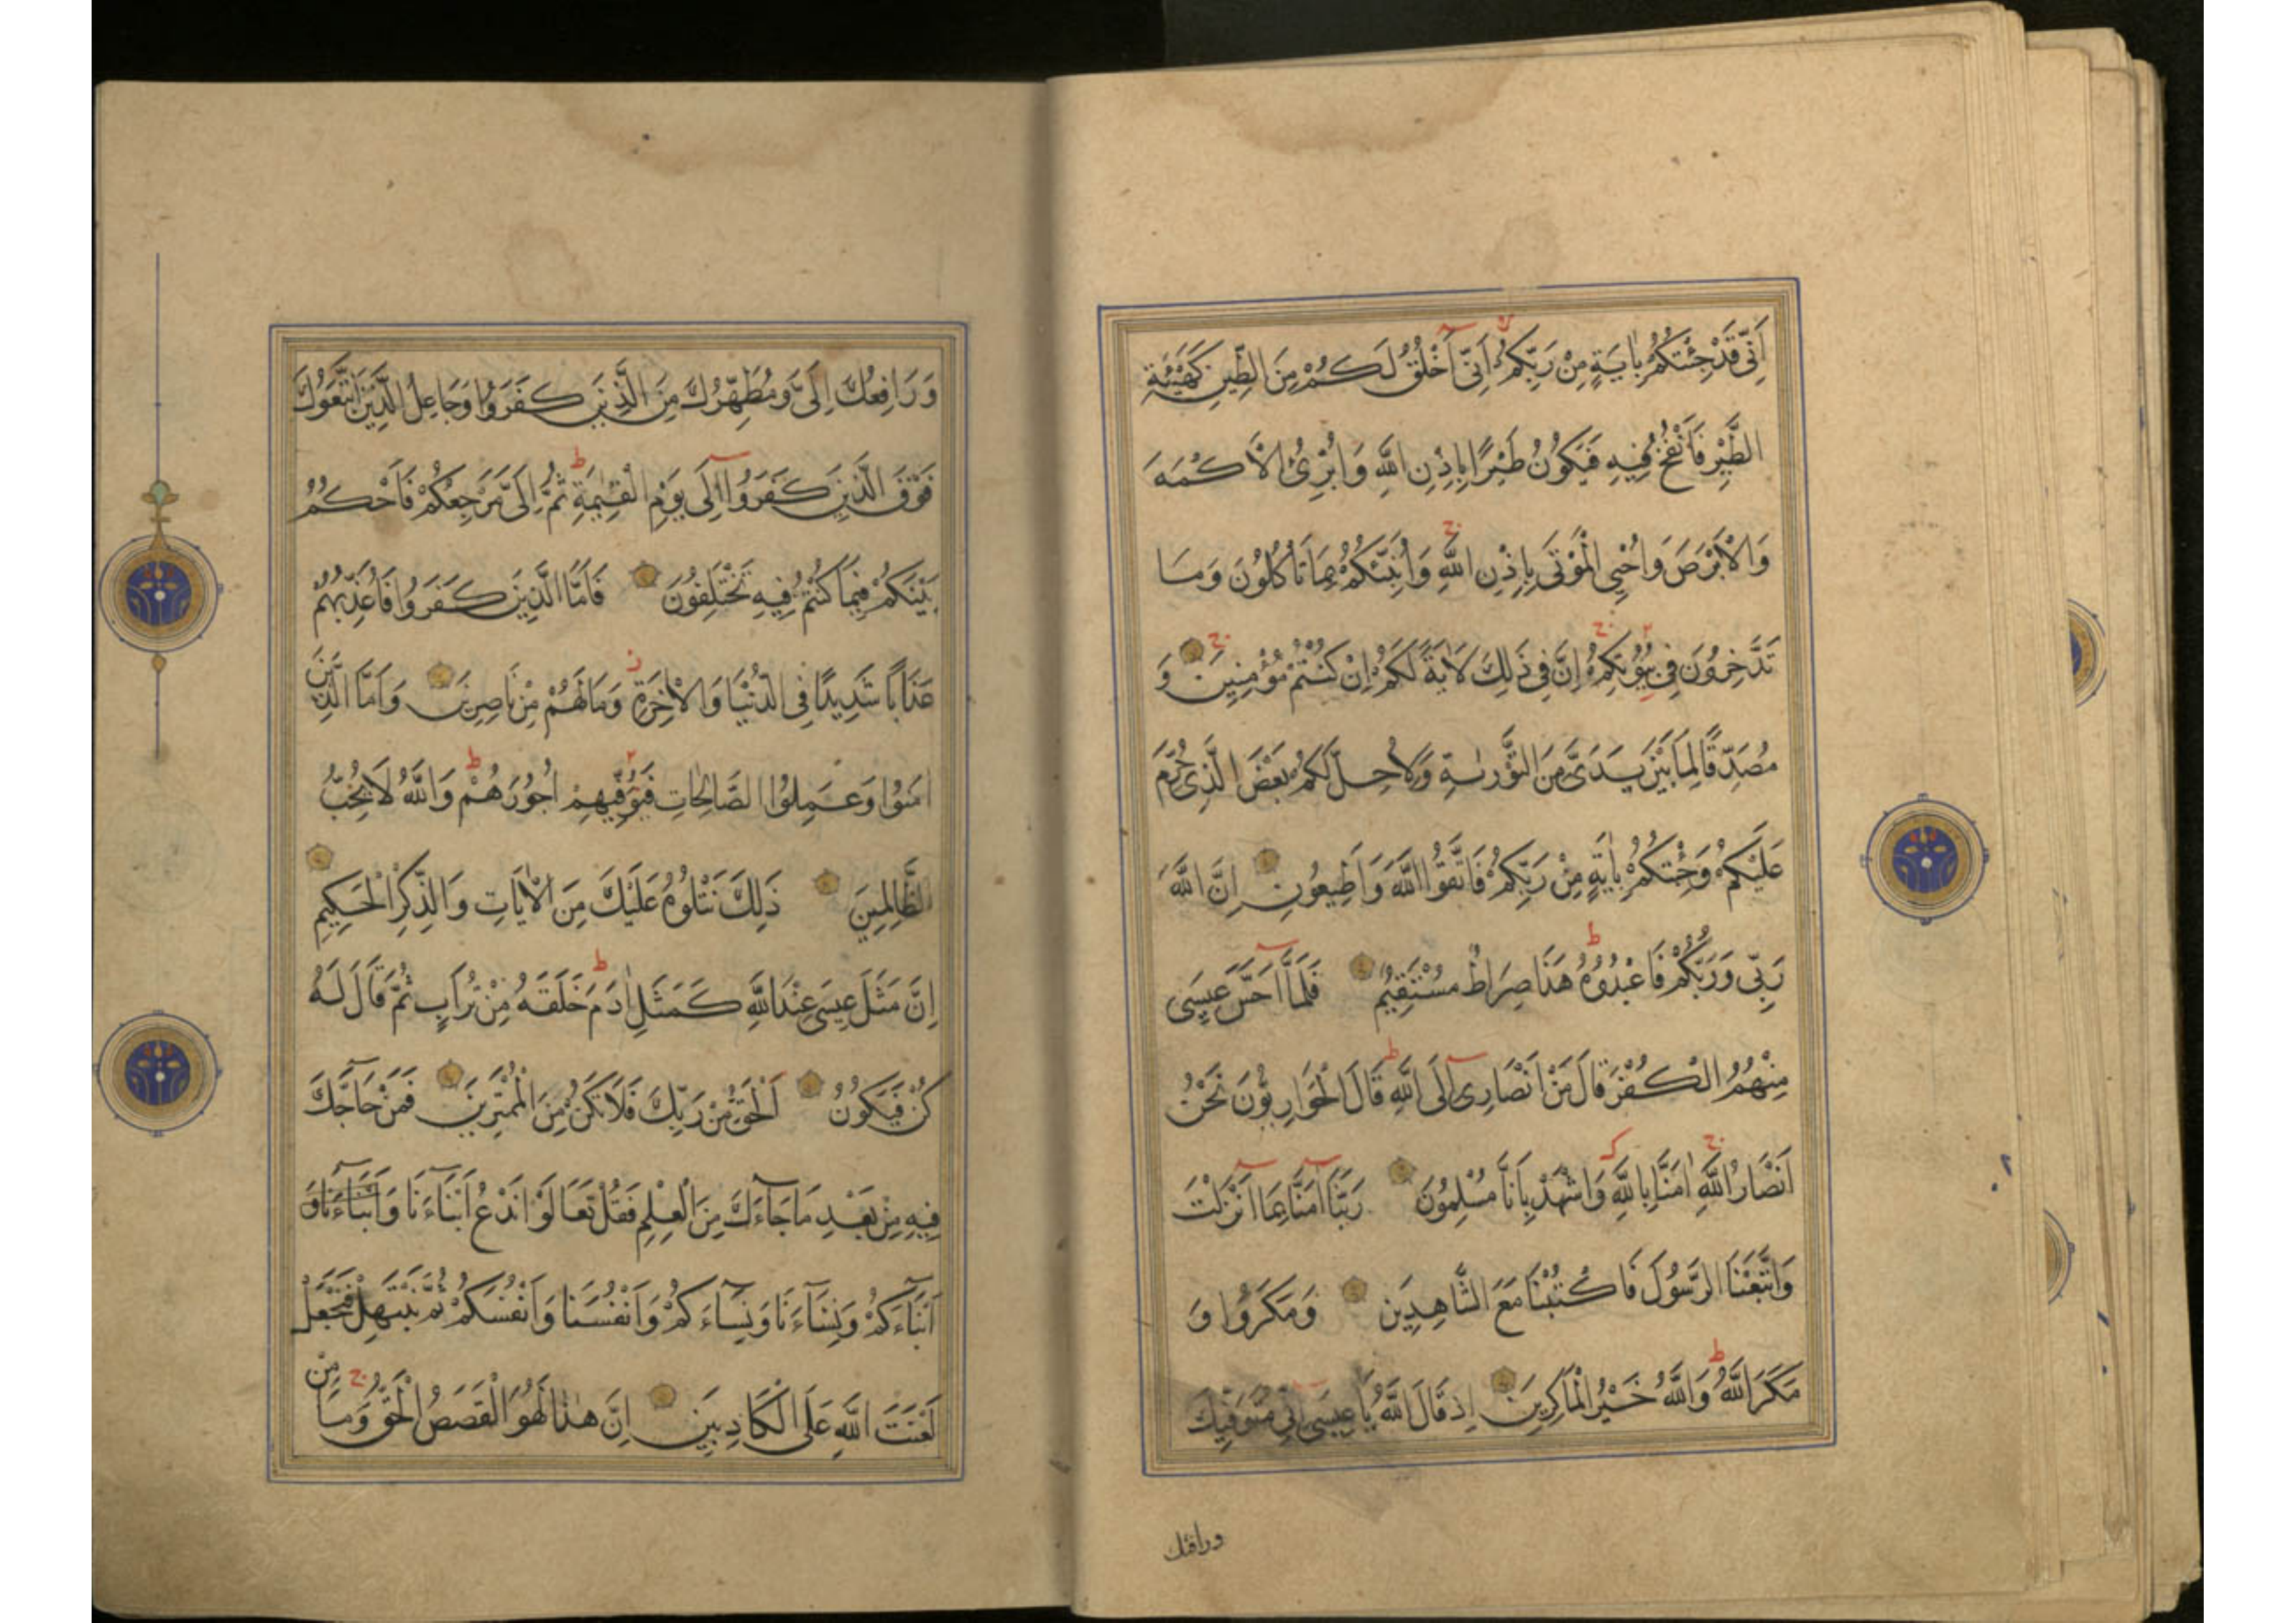 أَنِّي قَدْ جِئْتُكُمْ بِاٰيَةٍ مِنْ رَبِّكُمْ أَنِّي أَخْلُقُ لَكُمْ مِنَ الطِّينِ كَهَيْئَةِ
الطَّيْرِ فَأَنْفُخُ فِيهِ فَيَكُونُ طَيْرًا بِإِذْنِ اللَّهِ وَابْرِئُ الْأَكْمَهَ
وَالْأَبْرَصَ وَاُحْيِي الْمَوْتَى بِإِذْنِ اللَّهِ وَأُنَبِّئُكُمْ بِمَا تَأْكُلُونَ وَمَا
تَدَّخِرُونَ فِي بُيُوتِكُمْ إِنَّ فِي ذَلِكَ لَاٰيَةً لَكُمْ إِنْ كُنْتُمْ مُؤْمِنِينَ وَ
مُصَدِّقًا لِمَا بَيْنَ يَدَيَّ مِنَ التَّوْرٰيةِ وَلِأُحِلَّ لَكُمْ بَعْضَ الَّذِي حُرِّمَ
عَلَيْكُمْ وَجِئْتُكُمْ بِاٰيَةٍ مِنْ رَبِّكُمْ فَاتَّقُوا اللَّهَ وَأَطِيعُونِ إِنَّ اللَّهَ
رَبِّي وَرَبُّكُمْ فَاعْبُدُوهُ هَذَا صِرَاطٌ مُسْتَقِيمٌ فَلَمَّا أَحَسَّ عِيسَى
مِنْهُمُ الْكُفْرَ قَالَ مَنْ أَنْصَارِي إِلَى اللَّهِ قَالَ الْحَوَارِيُّونَ نَحْنُ
أَنْصَارُ اللَّهِ اٰمَنَّا بِاللَّهِ وَاشْهَدْ بِأَنَّا مُسْلِمُونَ رَبَّنَا اٰمَنَّا بِمَا أَنْزَلْتَ
وَاتَّبَعْنَا الرَّسُولَ فَاكْتُبْنَا مَعَ الشَّاهِدِينَ وَمَكَرُوا وَ
مَكَرَ اللَّهُ وَاللَّهُ خَيْرُ الْمَاكِرِينَ إِذْ قَالَ اللَّهُ يَا عِيسَى إِنِّي مُتَوَفِّيكَ
ورافعك
وَرَافِعُكَ إِلَيَّ وَمُطَهِّرُكَ مِنَ الَّذِينَ كَفَرُوا وَجَاعِلُ الَّذِينَ اتَّبَعُوكَ
فَوْقَ الَّذِينَ كَفَرُوا إِلَى يَوْمِ الْقِيٰمَةِ ثُمَّ إِلَيَّ مَرْجِعُكُمْ فَأَحْكُمُ
بَيْنَكُمْ فِيمَا كُنْتُمْ فِيهِ تَخْتَلِفُونَ فَأَمَّا الَّذِينَ كَفَرُوا فَأُعَذِّبُهُمْ
عَذَابًا شَدِيدًا فِي الدُّنْيَا وَالْاٰخِرَةِ وَمَا لَهُمْ مِنْ نَاصِرِينَ وَأَمَّا الَّذِينَ
اٰمَنُوا وَعَمِلُوا الصَّالِحَاتِ فَيُوَفِّيهِمْ أُجُورَهُمْ وَاللَّهُ لَا يُحِبُّ
الظَّالِمِينَ ذَلِكَ نَتْلُوهُ عَلَيْكَ مِنَ الْاٰيَاتِ وَالذِّكْرِ الْحَكِيمِ
إِنَّ مَثَلَ عِيسَى عِنْدَ اللَّهِ كَمَثَلِ اٰدَمَ خَلَقَهُ مِنْ تُرَابٍ ثُمَّ قَالَ لَهُ
كُنْ فَيَكُونُ اَلْحَقُّ مِنْ رَبِّكَ فَلَا تَكُنْ مِنَ الْمُمْتَرِينَ فَمَنْ حَاجَّكَ
فِيهِ مِنْ بَعْدِ مَا جَاءَكَ مِنَ الْعِلْمِ فَقُلْ تَعَالَوْا نَدْعُ أَبْنَاءَنَا وَأَبْنَاءَنَا وَ
أَبْنَاءَكُمْ وَنِسَاءَنَا وَنِسَاءَكُمْ وَأَنْفُسَنَا وَأَنْفُسَكُمْ ثُمَّ نَبْتَهِلْ فَنَجْعَلْ
لَعْنَتَ اللَّهِ عَلَى الْكَاذِبِينَ إِنَّ هٰذَا لَهُوَ الْقَصَصُ الْحَقُّ وَمَا مِنْ